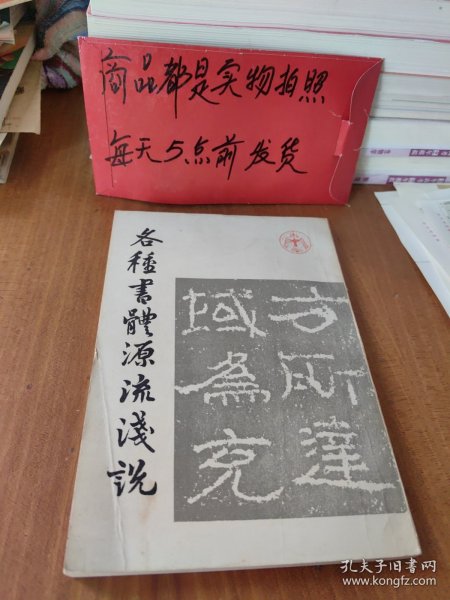 商品都是实物拍照
每天5点前发货
各種書體源流淺說
方所達
域為克
孔夫子旧书网
www.kongfz.com